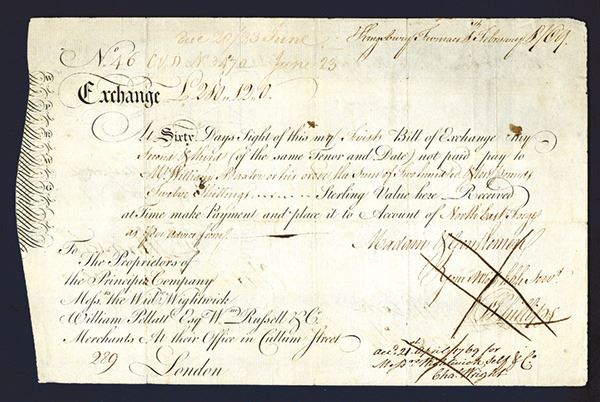 due 20/23 June
Kingsbury Furnace 4th February 1769.
No. 46 CVD No. 2470 June 23
Exchange £ 210 „ 12 „ 0.
At Sixty Days Sight of this my first Bill of Exchange my
Second & third (of the same Tenor and Date) not paid pay to
Mr. William Baxter or his order the Sum of Two hundred & ten pounds
Twelve Shillings Sterling Value here Received
at Time make Payment and place it to Account of North East Forge
as per advice from
To
The Proprietors of
the Principio Company
Messrs. the Wid. Wightwick
William Pellatt Esqr. Wm. Russell & Co.
Merchants At their Office in Cullum Street
289 London
Madam & Gentlemen
Your
accd. 21st april 1769 for
Messrs. Wightwick Self & Co.
Chas. Wright